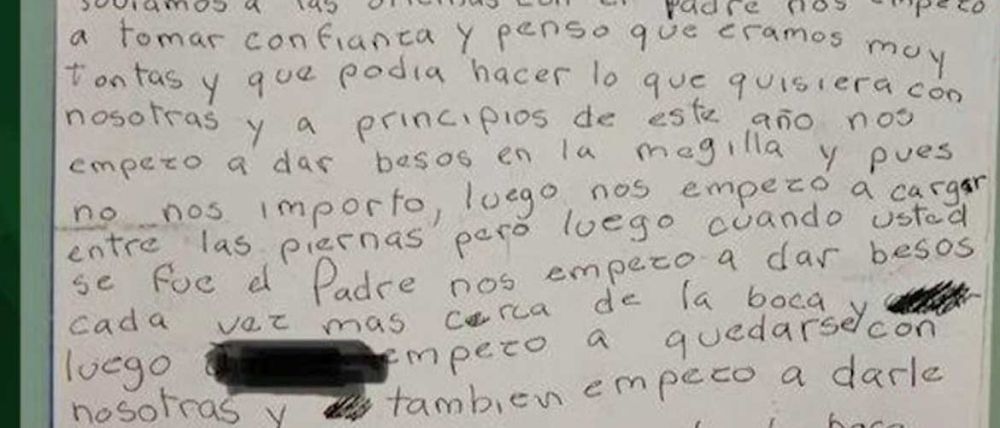 subiamos a las oficinas con el Padre nos empezo
a tomar confianza y penso que eramos muy
tontas y que podia hacer lo que quisiera con
nosotras y a principios de este año nos
empezo a dar besos en la megilla y pues
no nos importo, luego nos empezo a cargar
entre las piernas pero luego cuando usted
se fue el Padre nos empezo a dar besos
cada vez mas cerca de la boca y
luego empezo a quedarse con
nosotras y tambien empezo a darle